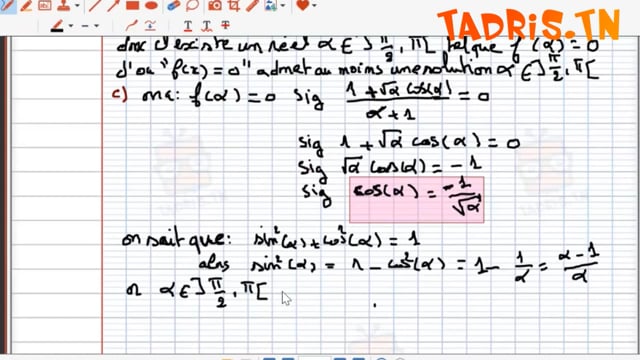 TADRIS.TN
donc il existe un réel α ∈ ]π/2, π[ tel que f(α) = 0
d'où "f(x) = 0" admet au moins une solution α ∈ ]π/2, π[
c) on a: f(α) = 0 sig (1 + √α cos(α))/(α + 1) = 0
sig 1 + √α cos(α) = 0
sig √α cos(α) = -1
sig cos(α) = -1/√α
on sait que: sin²(α) + cos²(α) = 1
alors sin²(α) = 1 - cos²(α) = 1 - 1/α = (α - 1)/α
or α ∈ ]π/2, π[